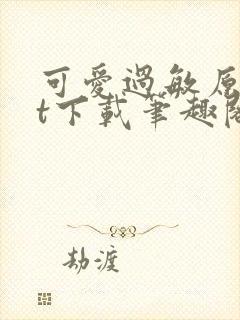 可愛過敏原
t下載筆趣閣
劫渡